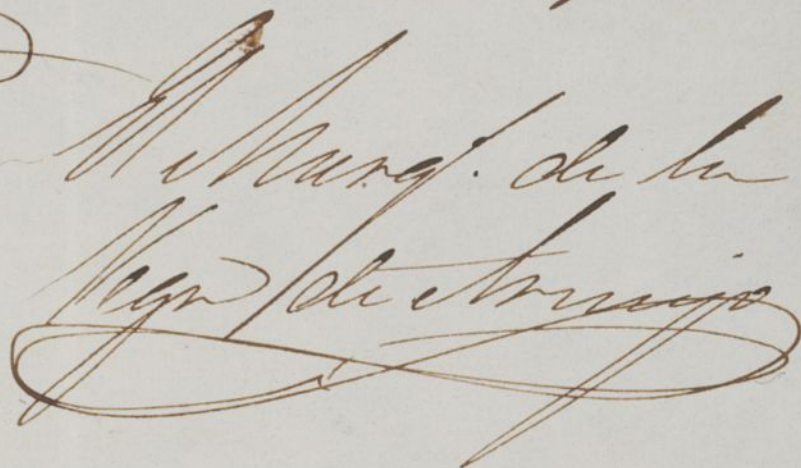 El Marq. de la
Vega de Armijo